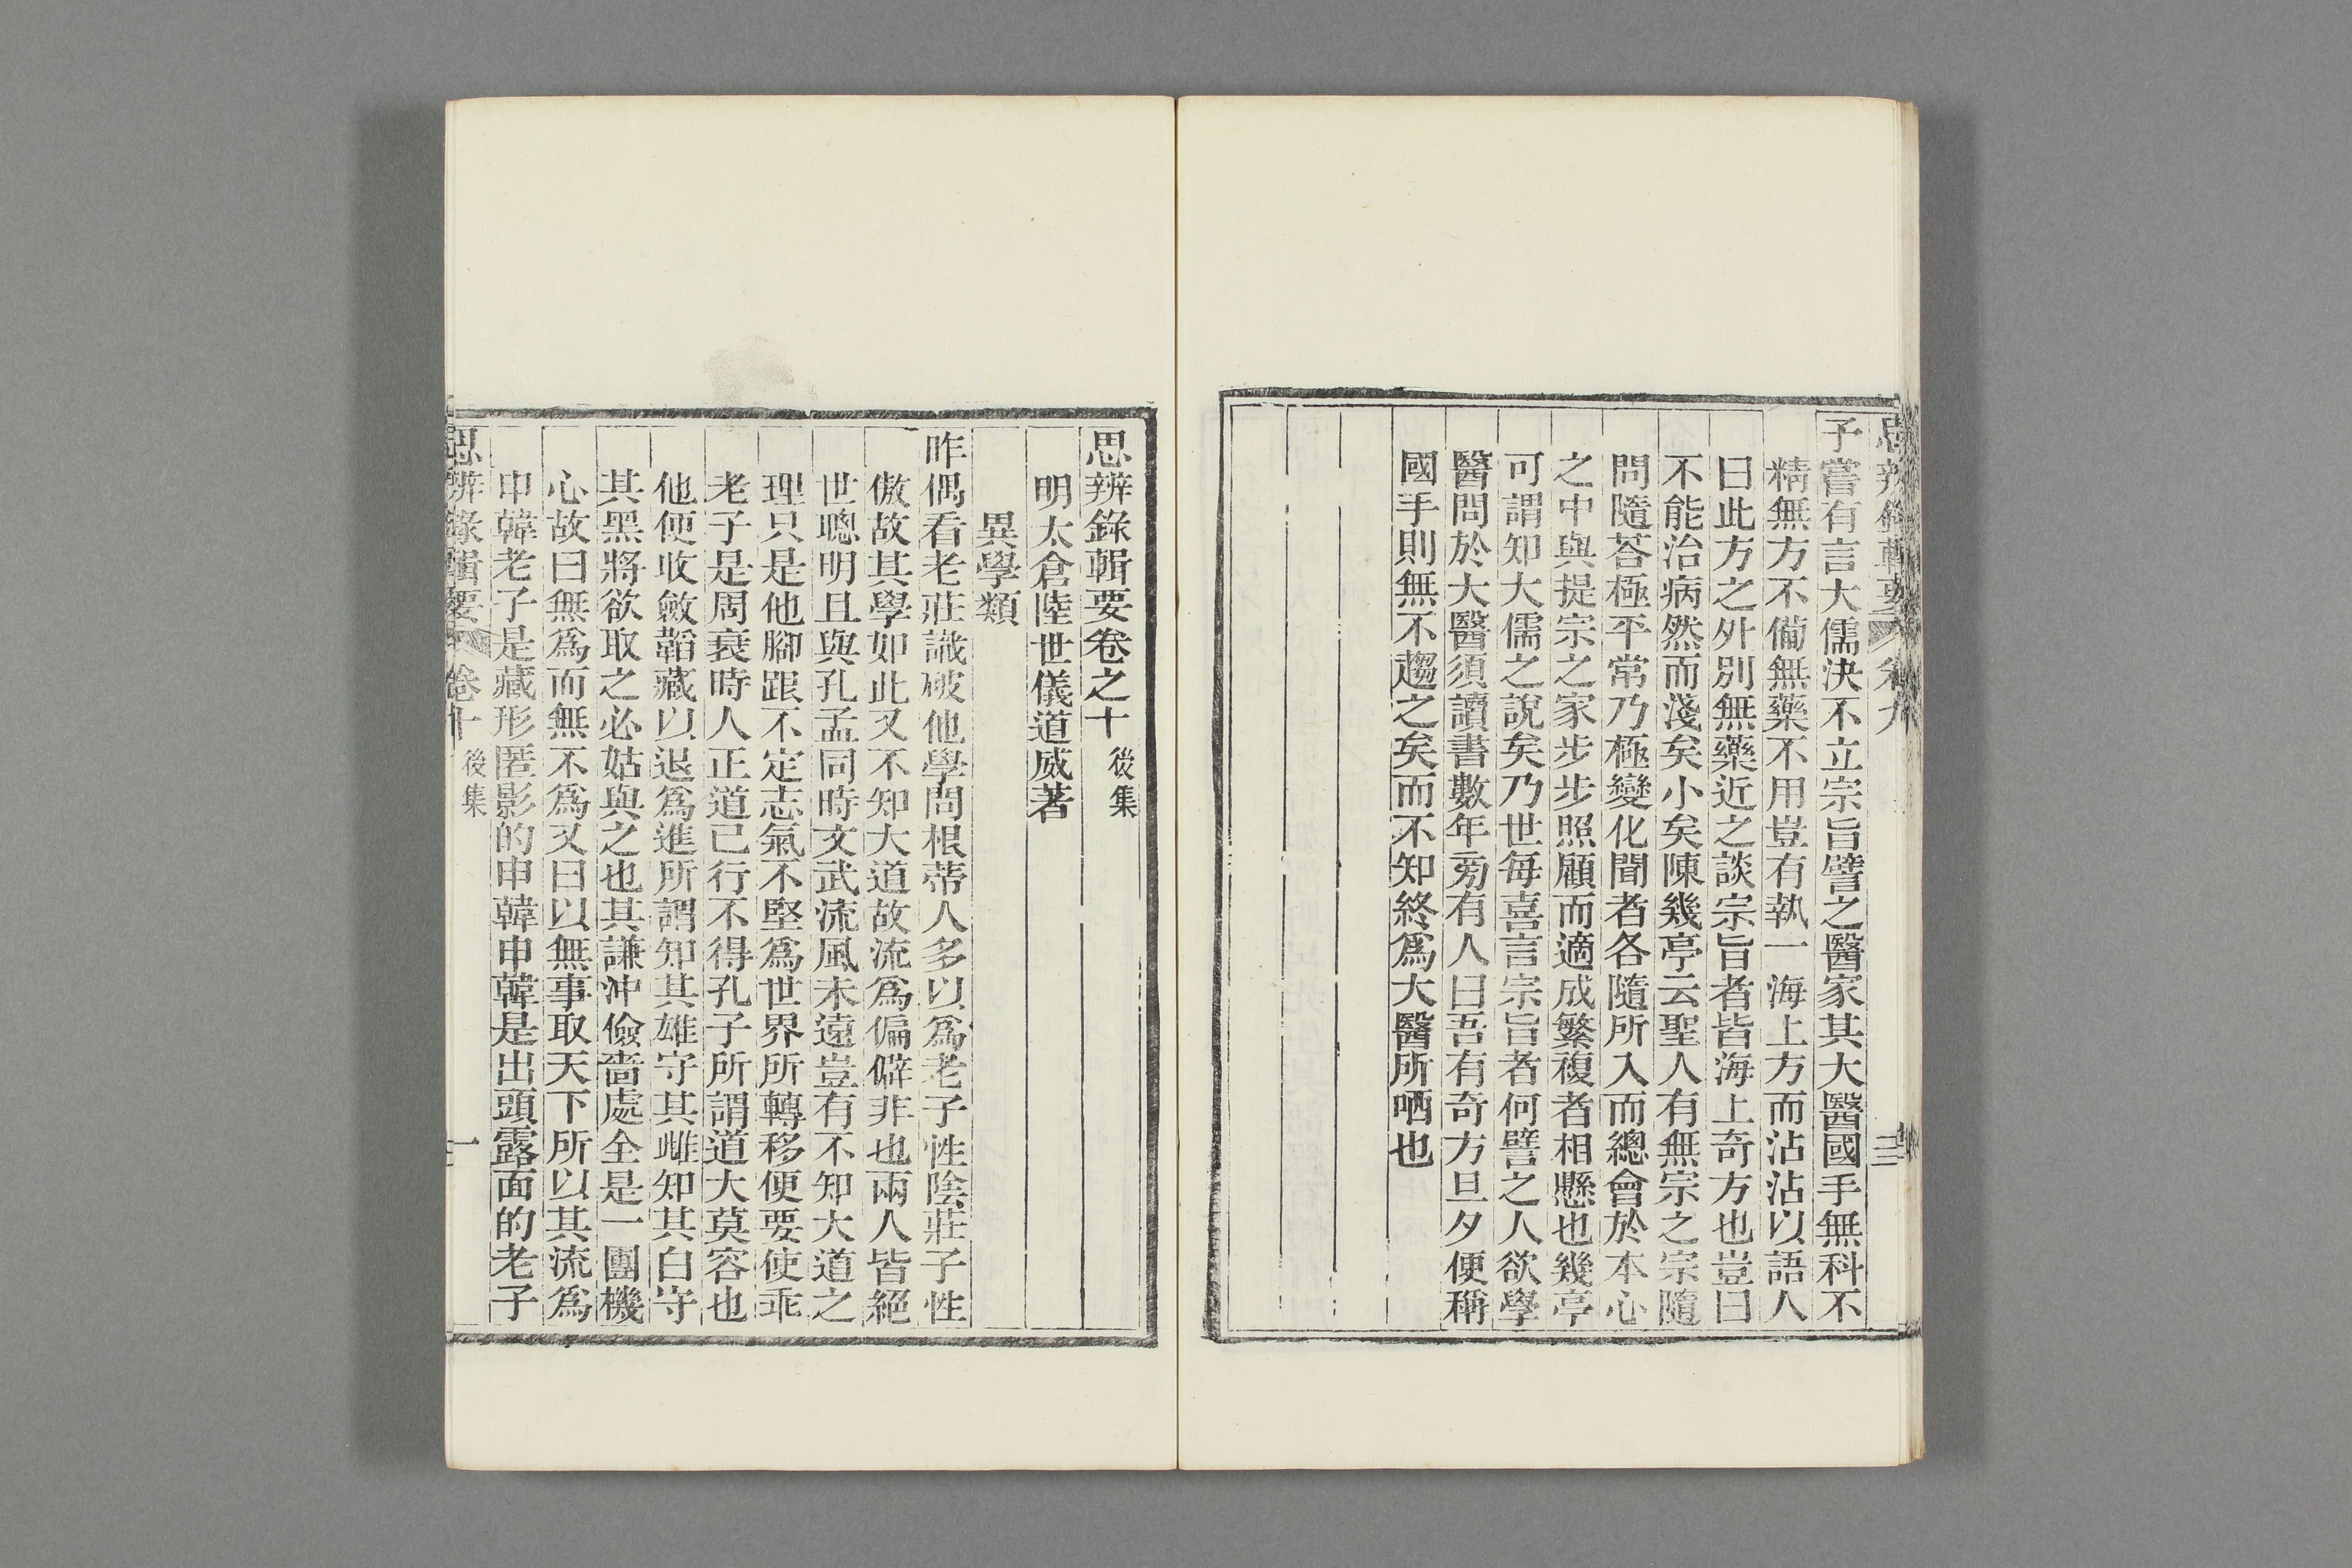 思辨錄輯要 卷九 三
子嘗有言大儒決不立宗旨譬之醫家其大醫國手無科不
精無方不備無藥不用豈有執一海上方而沾沾以語人
曰此方之外別無藥近之談宗旨者皆海上奇方也豈曰
不能治病然而淺矣小矣陳幾亭云聖人有無宗之宗隨
問隨荅極平常乃極變化聞者各隨所入而總會於本心
之中與提宗之家步步照顧而適成繁複者相懸也幾亭
可謂知大儒之說矣乃世每喜言宗旨者何譬之人欲學
醫問於大醫須讀書數年旁有人曰吾有奇方旦夕便稱
國手則無不趨之矣而不知終爲大醫所哂也
思辨錄輯要卷之十 後集
明太倉陸世儀道威著
異學類
昨偶看老莊識破他學問根蒂人多以爲老子性陰莊子性
傲故其學如此又不知大道故流爲偏僻非也兩人皆絕
世聰明且與孔孟同時文武流風未遠豈有不知大道之
理只是他腳跟不定志氣不堅爲世界所轉移便要使乖
老子是周衰時人正道已行不得孔子所謂道大莫容也
他便收斂韜藏以退爲進所謂知其雄守其雌知其白守
其黑將欲取之必姑與之也其謙沖儉嗇處全是一團機
心故曰無爲而無不爲又曰以無事取天下所以其流爲
申韓老子是藏形匿影的申韓申韓是出頭露面的老子
思辨錄輯要 卷十 後集 一